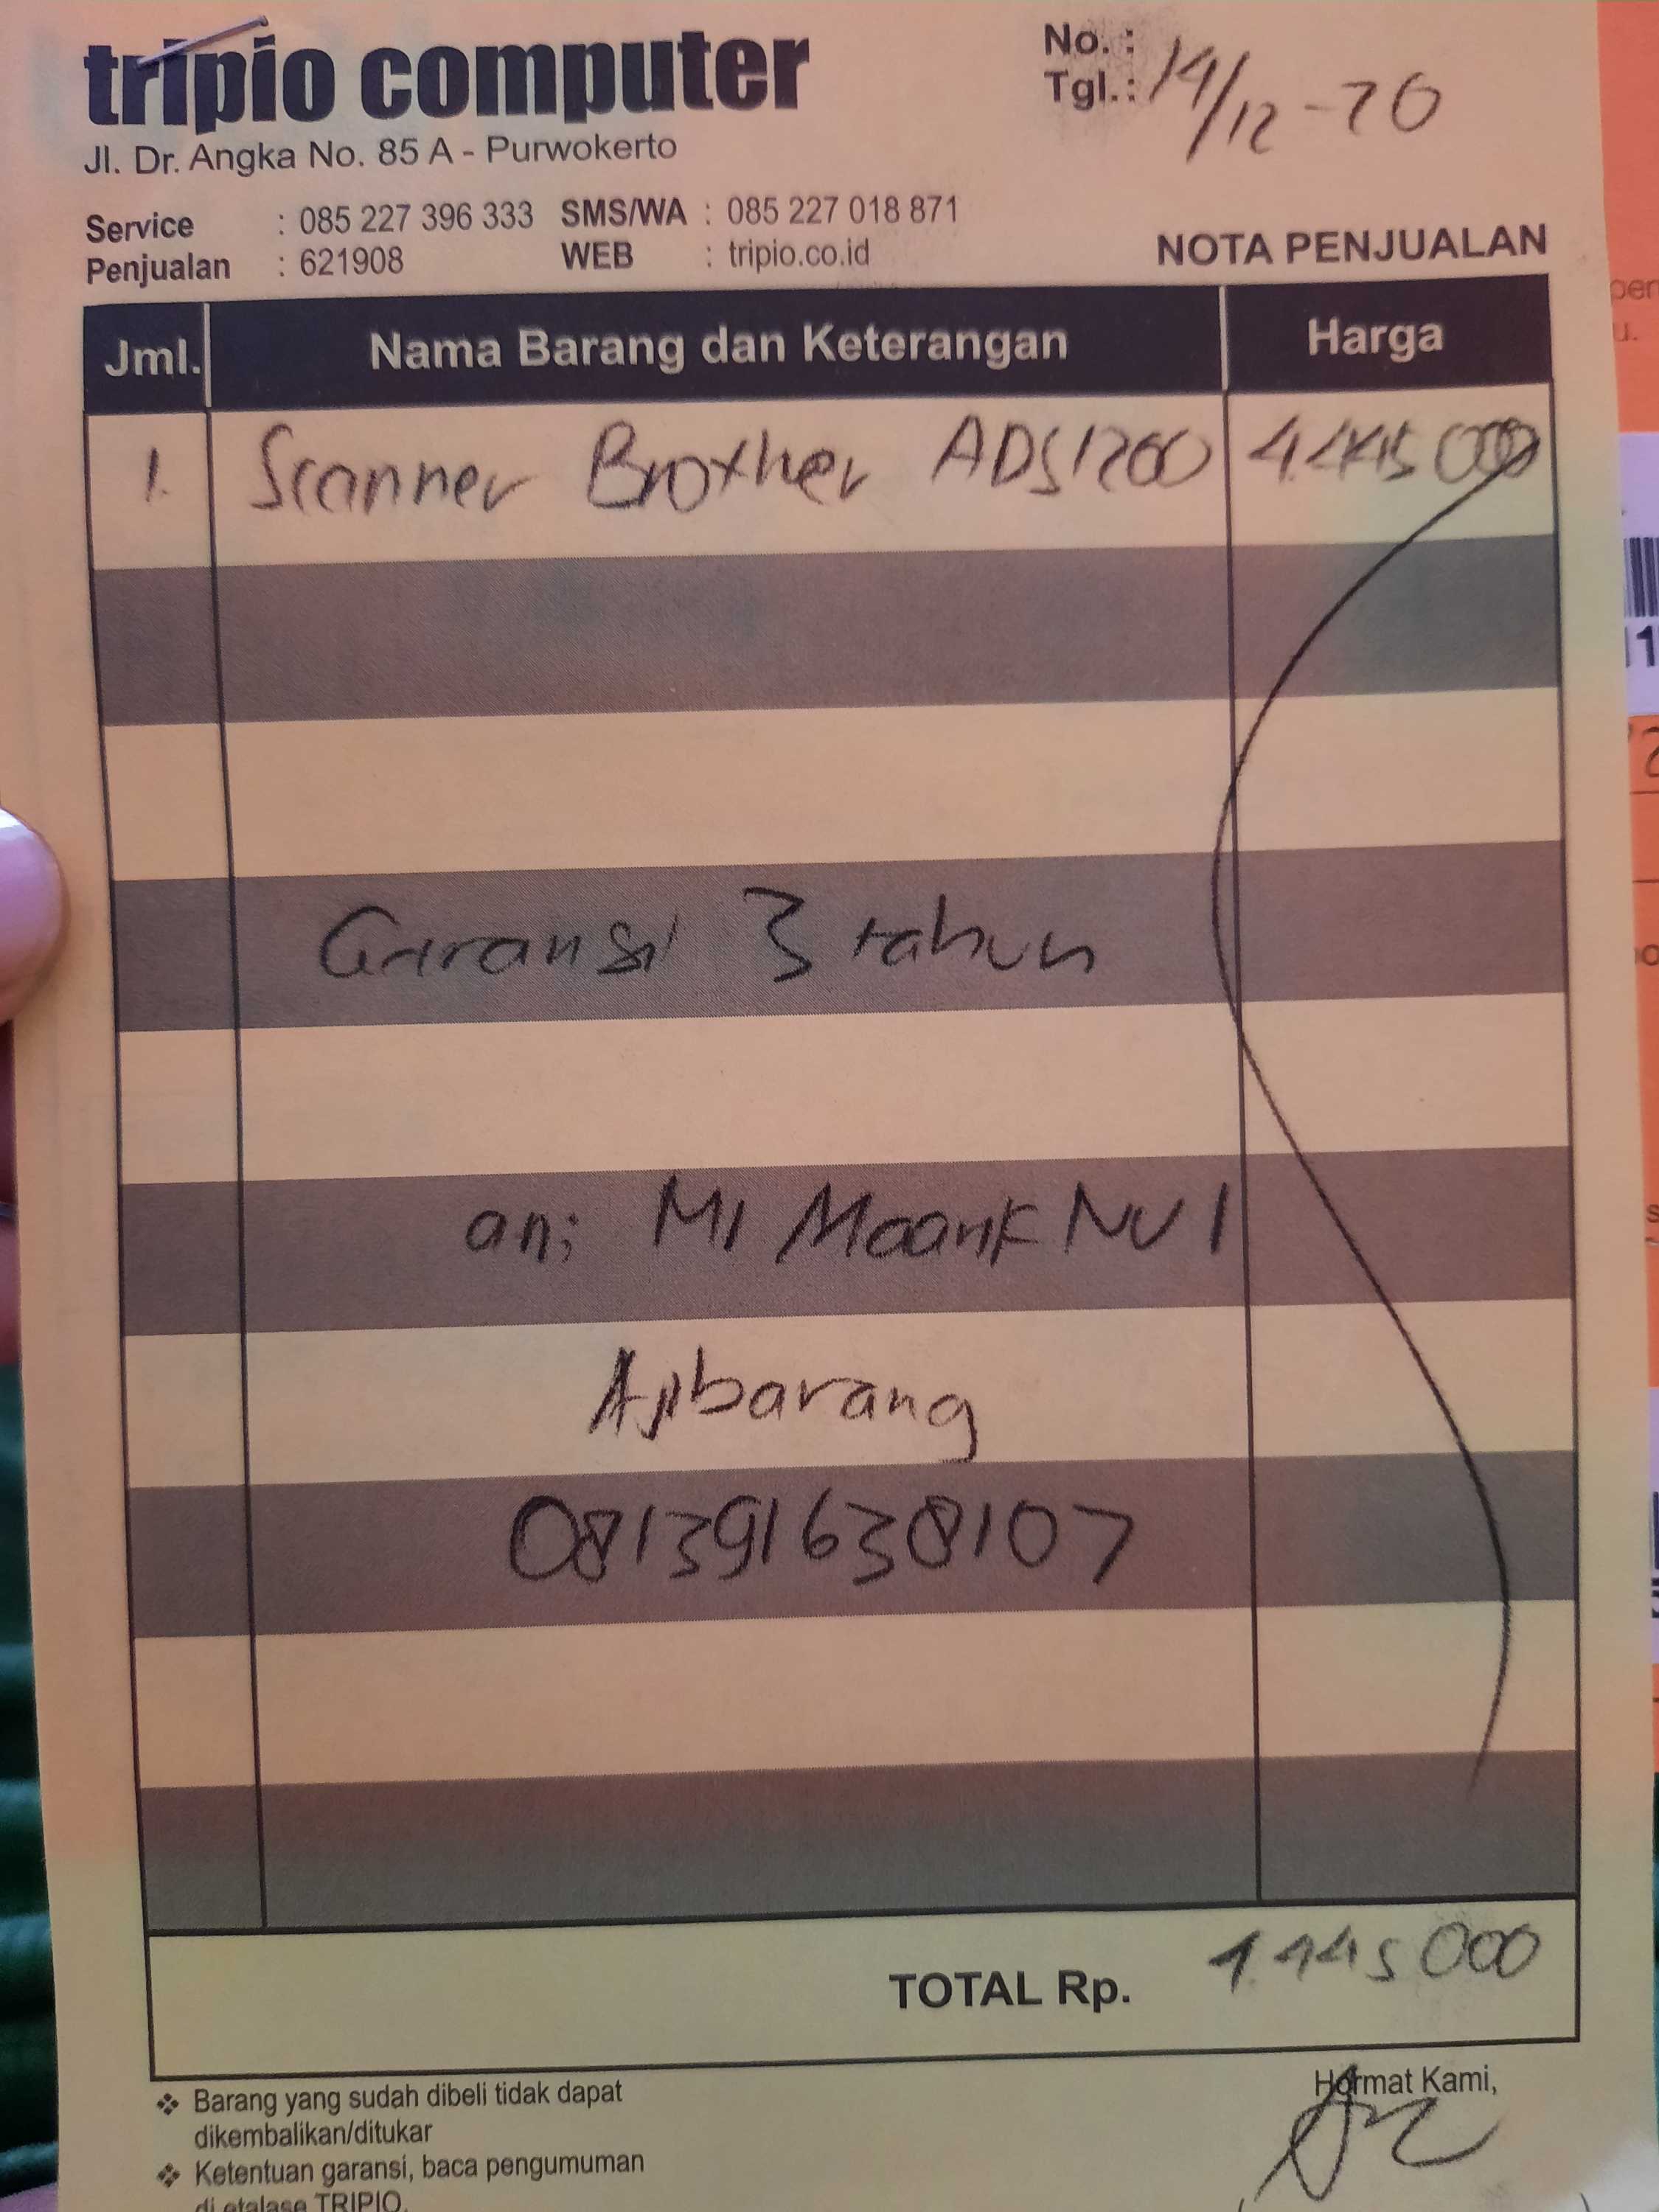 tripio computer
Jl. Dr. Angka No. 85 A - Purwokerto
No. :
Tgl.: 14/12-20
Service : 085 227 396 333 SMS/WA : 085 227 018 871
Penjualan : 621908 WEB : tripio.co.id
NOTA PENJUALAN
Jml. Nama Barang dan Keterangan Harga
1. Scanner Brother ADS1200 4.445 000
Garansi 3 tahun
an; MI Maarif NU 1
Ajibarang
081391638107
TOTAL Rp. 4.445 000
Hormat Kami,
❖ Barang yang sudah dibeli tidak dapat
dikembalikan/ditukar
❖ Ketentuan garansi, baca pengumuman
di etalase TRIPIO.